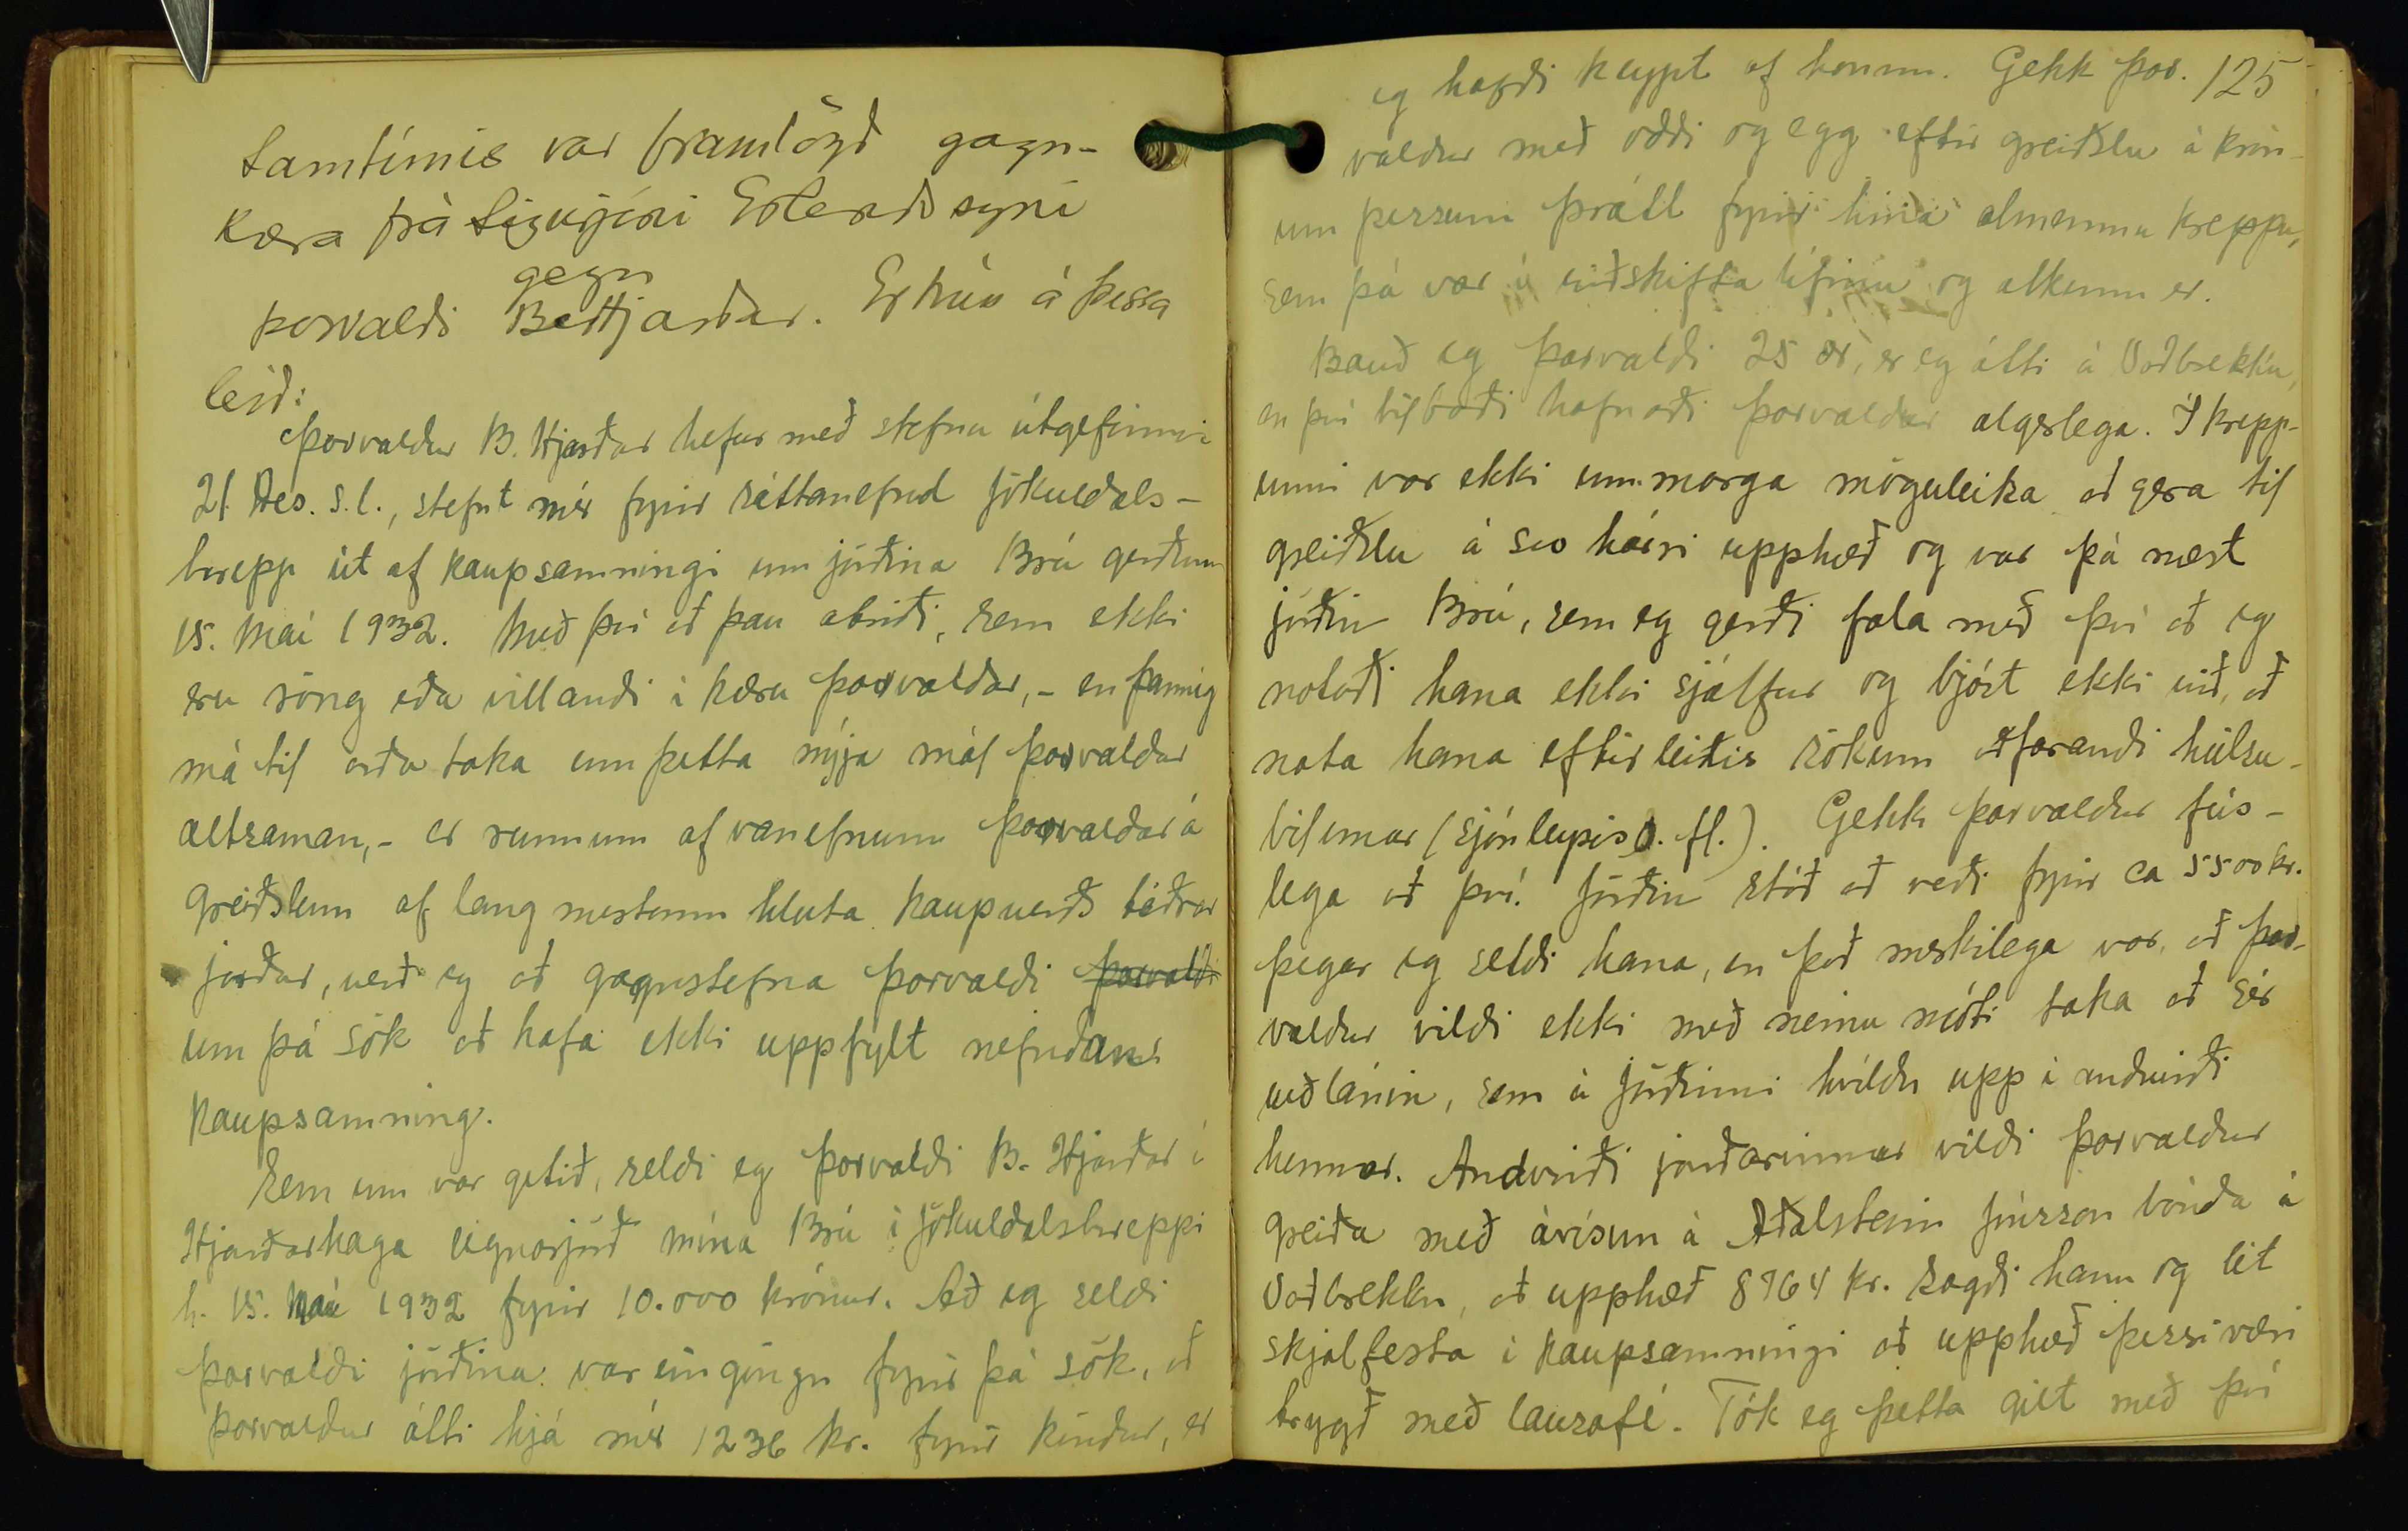 Samtímis var framlögð gagn-
kæra frá Sigurjóni Erlendssyni
gegn
Þorvaldi B. Hjarðar. Er hún á þessa
leið:
Þorvaldur B. Hjarðar hefur með stefnu útgefinni
21. Des. s.l., stefnt mér fyrir sáttanefnd Jökuldals-
hrepp út af kaupsamningi um jörðina Brú gerðum
15. Maí 1932. Með því að þau atriði, sem ekki
eru röng eða villandi í kæru Þorvaldar, - en þannig
má til orða taka um þetta nýja mál Þorvaldar
altsaman, - er runnum af vanefnum Þorvaldar á
greiðslum af lang mestum hluta kaupverðs téðrar
jarðar, verð eg að gagnstefna Þorvaldi Þorvaldi
um þá sök að hafa ekki uppfylt nefndan
kaupsamning.
Sem um var getið, seldi eg Þorvaldi B. Hjarðar í
Hjarðarhaga eignarjörð mína Brú í Jökuldalshreppi
h. 15. Maí 1932 fyrir 10.000 krónur. Að eg seldi
Þorvaldi jörðina var eingöngu fyrir þá sök, að
Þorvaldur átti hjá mér 1236 kr. fyrir kindur, er
125
eg hafði keypt af honum. Gekk Þor-
valdur með oddi og egg eftir greiðslu á krón-
um þessum þrátt fyrir hina almennu kreppu,
sem þá var í viðskiftalífinu og alkunn er.
Bauð eg Þorvaldi 25 ær, er eg átti á Vaðbrekku,
en því tilboði hafnaði Þorvaldur algerlega. Í krepp-
unni var ekki um marga möguleika að gera til
greiðslu á svo hárri upphæð og var þá næst
jörðin Brú, sem eg gerði fala með því að eg
notaði hana ekki sjálfur og bjóst ekki við, að
nota hana eftirleiðis sökum farandi heilsu-
bilunar (sjónleysis o. fl.). Gekk Þorvaldur fús-
lega að því. Jörðin stóð að veði fyrir ca 5500 kr.
þegar eg seldi hana, en það merkilega var, að Þor-
valdur vildi ekki með neinu móti taka að sér
veðlánin, sem á jörðinni hvíldu upp í andvirði
hennar. Andvirði jarðarinnar vildi Þorvaldur
greiða með ávísun á Aðalstein Jónsson bónda á
Vaðbrekku, að upphæð 8764 kr. Sagði hann og lét
skjalfesta í kaupsamningi að upphæð þessi væri
trygð með lausafé. Tók eg þetta gilt með því